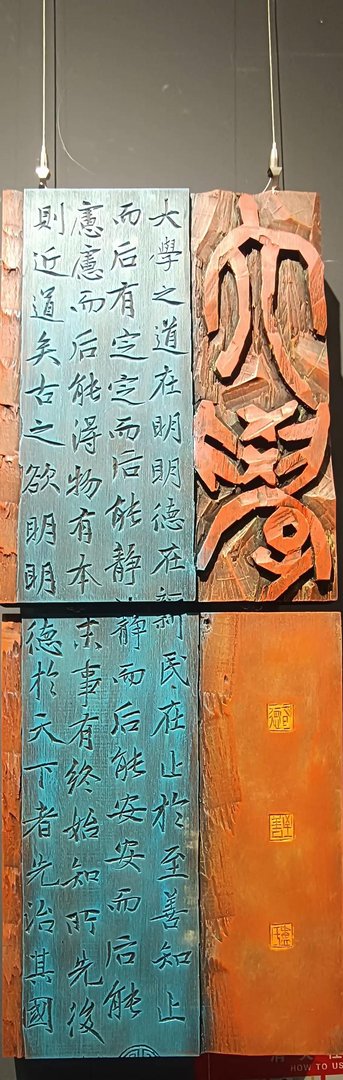 大學
大學之道在明明德在新民在止於至善知止
而后有定定而后能靜靜而后能安安而后能
慮慮而后能得物有本末事有終始知所先後
則近道矣古之欲明明德於天下者先治其國
HOW TO US